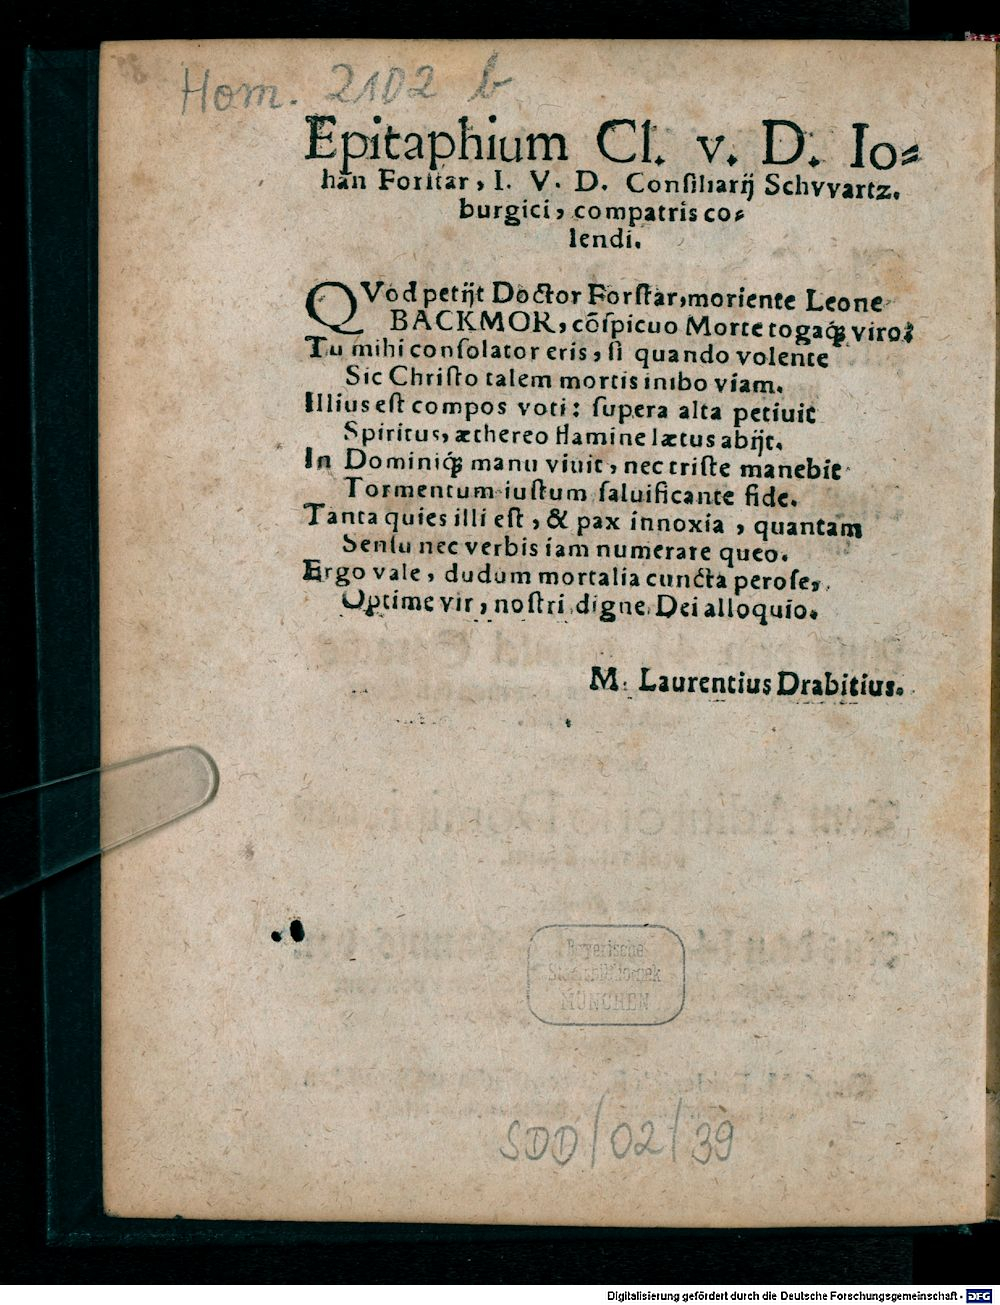 Hom. 2102 b
Epitaphium Cl. v. D. Io⸗
han Forſtar, I. V. D. Conſiliarij Schvvartz.
burgici, compatris co⸗
lendi.
QVod petijt Doctor Forſtar, moriente Leone
BACKMOR, cõſpicuo Morte togaq́; viro:
Tu mihi conſolator eris, ſi quando volente
Sic Chriſto talem mortis inibo viam.
Illius eſt compos voti: ſupera alta petiuit
Spiritus, æthereo flamine lætus abijt.
In Dominiq́; manu viuit, nec triſte manebit
Tormentum iuſtum ſaluificante fide.
Tanta quies illi eſt, & pax innoxia, quantam
Senſu nec verbis iam numerare queo.
Ergo vale, dudum mortalia cuncta peroſe,
Optime vir, noſtri digne Dei alloquio.
M. Laurentius Drabitius.
Bayerische
Staatsbibliothek
MÜNCHEN
SDD/02/39
Digitalisierung gefördert durch die Deutsche Forschungsgemeinschaft - DFG